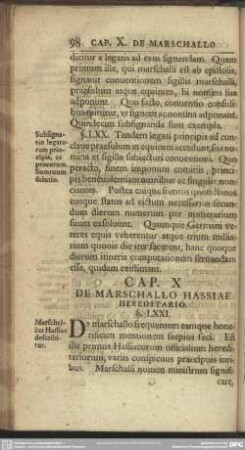 98 CAP. X. DE MARSCHALLO
dicitur a legatis ad eam signandam. Quam
primum ille, qui marschalli est ab epistolis,
signavit conventionem sigillis marschalli,
praesultum atque equitum, hi nomina sua
adponunt. Quo facto, conventio
Quindecim subsignanda sunt exempla.
Subsigna-
tio legato-
rum prin-
cipis, et
procerum.
Sumtuum
solutio.
§. LXX. Tandem legati principis ad con-
clave praesulum et equitum accedunt, sua no-
mina et sigilla subiecturi conventioni. Quo
peracto, finem imponunt comitiis, princi-
pis omnibus ac singulis nun-
ciantes. Postea cuique sumtus
eoque status ad victum necessarius secun-
dum dierum numerum per numeratorem
suum exsolvunt. Quumque Germani ve-
teres equis veherentur, atque trium millia-
rium quovis die iter facerent, hanc quoque
dierum itineris computationem servandam
esse, quidam existimant.
CAP. X
DE MARSCHALLO HASSIAE
HEREDITARIO.
§. LXXI.
Marschal-
lus Hassiae
describi-
tur.
De marschallo frequentem eumque hono-
rificam mentionem saepius feci. Est
ille primus Hassiacorum officialium heredi-
tariorum, variis conspicuus praecipuis iuri-
bus. Marschalli nomen ministrum signifi-
caret,